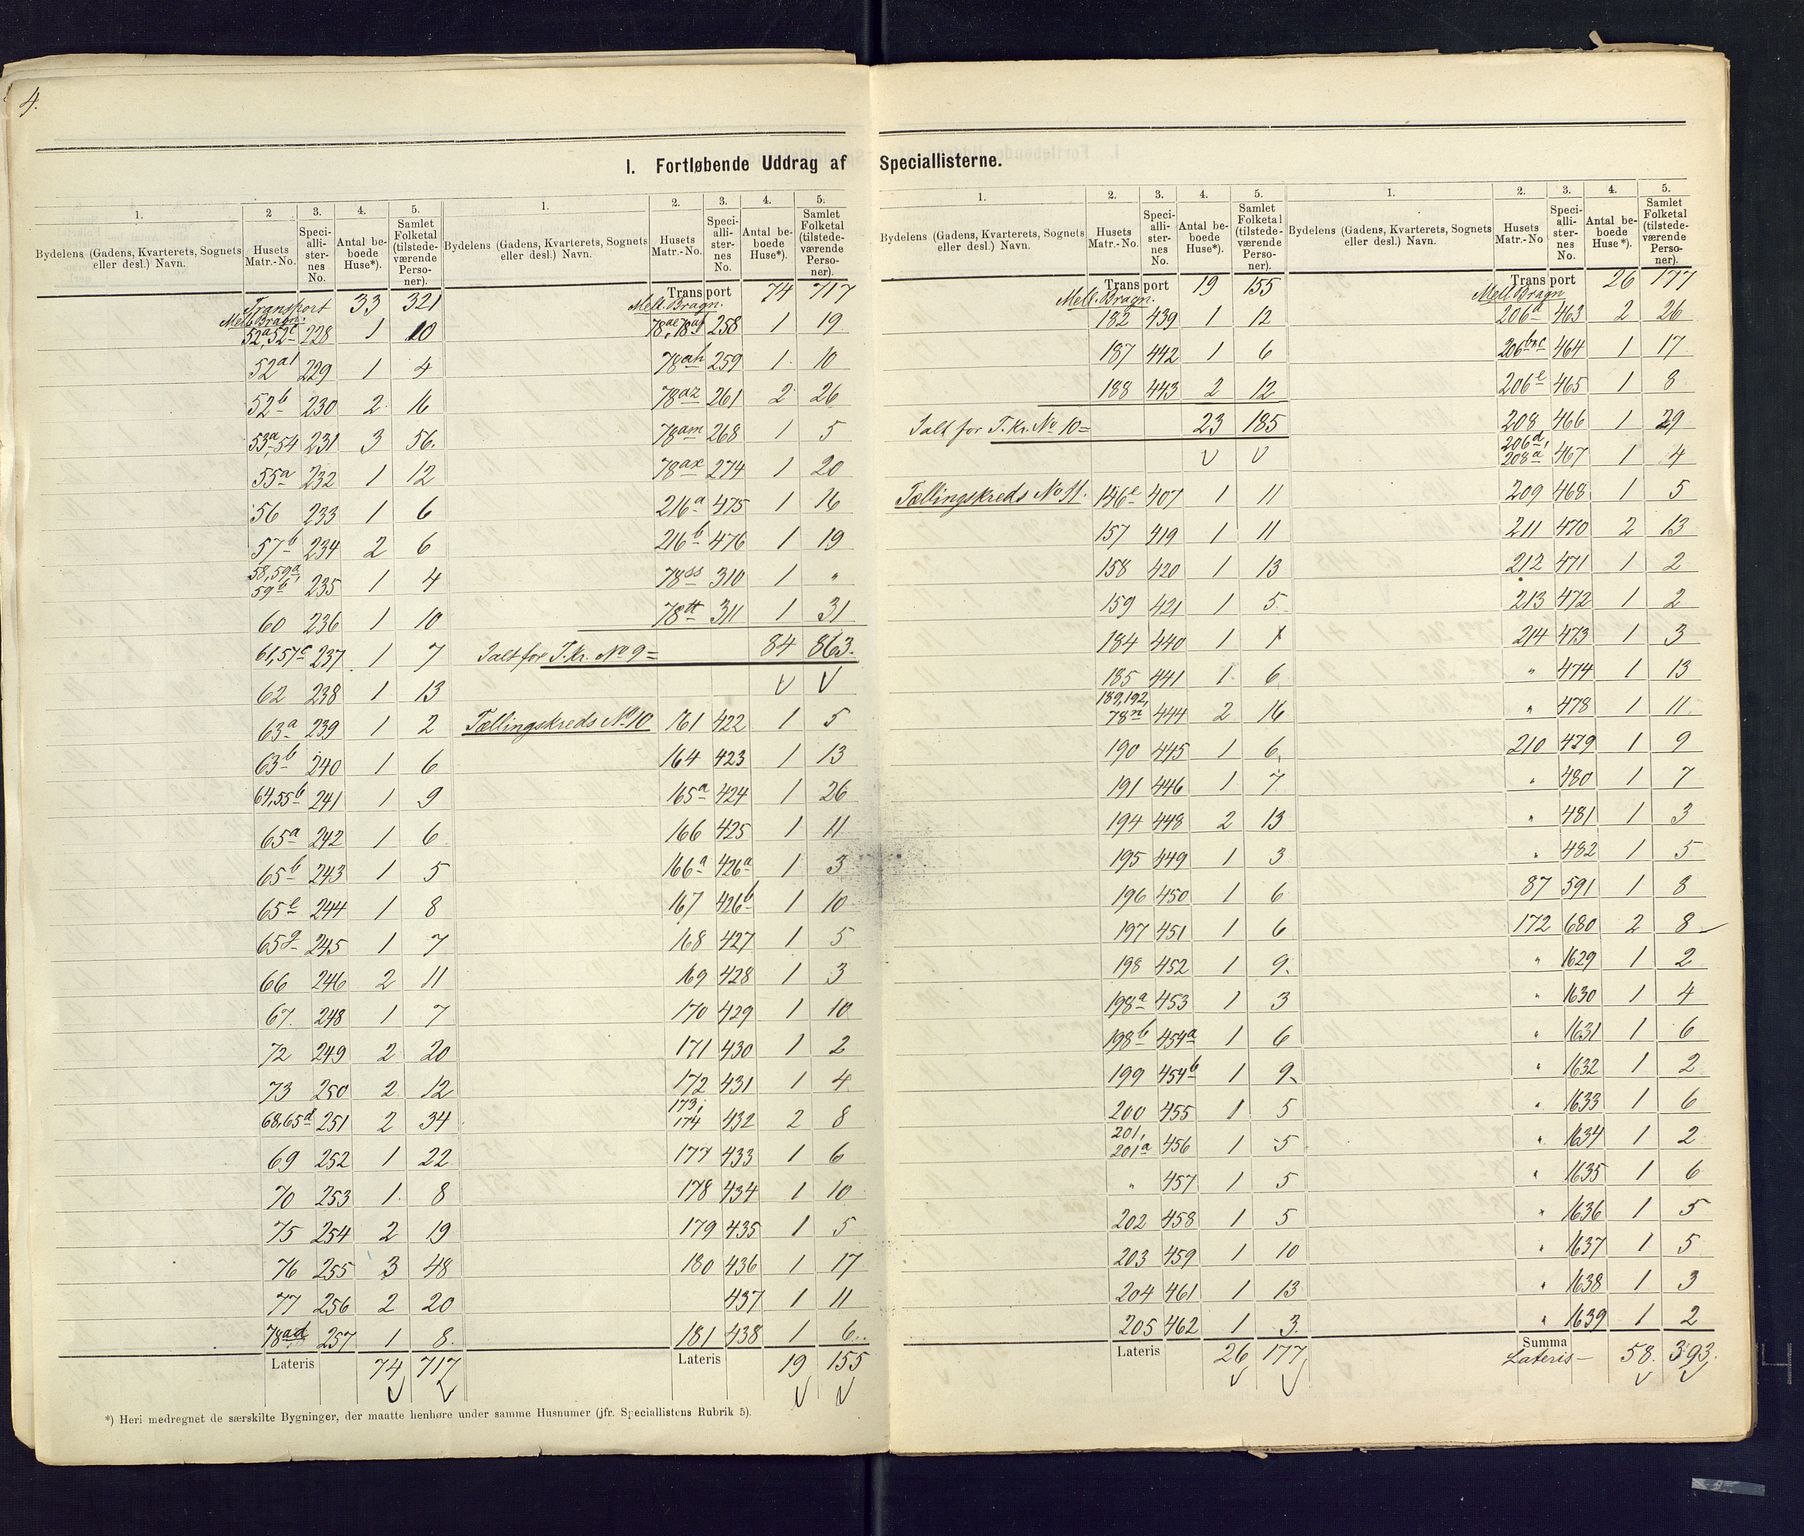 4.
I. Fortløbende Uddrag af Speciallisterne.
1. 2 3. 4. 5.
Bydelens (Gadens, Kvarterets, Sognets eller desl.) Navn. Husets Matr.-No. Specialli-sternes No. Antal beboede Huse*). Samlet Folketal (tilstedeværende Personer).
Transport 33 321
Mell. Bragn.
52a, 52c 228 1 10
52a1 229 1 4
52b 230 2 16
53a, 54 231 3 56.
55a 232 1 12
56 233 1 6
57b 234 2 6
58, 59a,
59b 235 1 4
60 236 1 10
61, 57c 237 1 7
62 238 1 13
63a 239 1 2
63b 240 1 6
64, 55b 241 1 9
65a 242 1 6
65b 243 1 5
65e 244 1 8
65g 245 1 7
66 246 2 11
67. 248 1 7
72 249 2 20
73 250 2 12
68, 65d 251 2 34
69 252 1 22
70 253 1 8
75 254 2 19
76 255 3 48
77 256 2 20
78ad 257 1 8.
Lateris 74 717
*) Heri medregnet de særskilte Bygninger, der maatte henhøre under samme Husnumer (jfr. Speciallistens Rubrik 5).
1. 2. 3. 4. 5.
Bydelens (Gadens, Kvarterets, Sognets eller desl.) Navn. Husets Matr.-No. Specialli-sternes No. Antal beboede Huse*). Samlet Folketal (tilstedeværende Personer).
Transport 74 717
Mell. Bragn.
78ae, 78af 258 1 19
78ah 259 1 10
78az 261 2 26
78am 268 1 5
78ax 274 1 20
216a 475 1 16
216b 476 1 19
78ss 310 1 "
78tt 311 1 31
Ialt for T. Kr. No 9 = 84 863.
Tællingskreds No 10 161 422 1 5
164 423 1 13
165a 424 1 26
166 425 1 11
166a 426a 1 3
167 426b 1 10
168 427 1 5
169 428 1 3
170 429 1 10
171 430 1 2
172 431 1 4
173,
174 432 2 8
177 433 1 6
178 434 1 10
179 435 1 5
180 436 1 17
437 1 11
181 438 1 6..
Lateris 19 155
1. 2. 3. 4. 5.
Bydelens (Gadens, Kvarterets, Sognets eller desl.) Navn. Husets Matr.-No. Specialli-sternes No. Antal beboede Huse*). Samlet Folketal (tilstedeværende Personer).
Transport 19 155
Mell. Bragn.
182 439 1 12
187 442 1 6
188 443 2 12
Ialt for T. Kr. No 10 = 23 185
Tællingskreds No 11. 156e 407 1 11
157 419 1 11
158 420 1 13
159 421 1 5
184 440 1 1
185 441 1 6
189, 192,
78n 444 2 16
190 445 1 6
191 446 1 7
194 448 2 13
195 449 1 3
196 450 1 6
197 451 1 6
198 452 1 9.
198a 453 1 3
198b 454a 1 6
199 454b 1 9
200 455 1 5
201,
201a 456 1 5
" 457 1 5
202 458 1 5
203 459 1 10
204 461 1 13
205 462 1 3.
Lateris 26 177
1. 2. 3. 4. 5.
Bydelens (Gadens, Kvarterets, Sognets eller desl.) Navn. Husets Matr.-No. Specialli-sternes No. Antal beboede Huse*). Samlet Folketal (tilstedeværende Personer).
Transport 26 177
Mell. Bragn
206a 463 2 26
206b&c 464 1 17
206e 465 1 8
208 466 1 29
206d,
208a 467 1 4
209 468 1 5
211 470 2 13
212 471 1 2
213 472 1 2
214 473 1 3
" 474 1 13
" 478 1 11
210 479 1 9
" 480 1 7
" 481 1 3
" 482 1 5
87 591 1 8
172 680 2 8
" 1629 1 2
" 1630 1 4
" 1631 1 6
" 1632 1 2
" 1633 1 6
" 1634 1 2
" 1635 1 6
" 1636 1 5
" 1637 1 5
" 1638 1 3
" 1639 1 2
Summa
Lateris 58. 393.